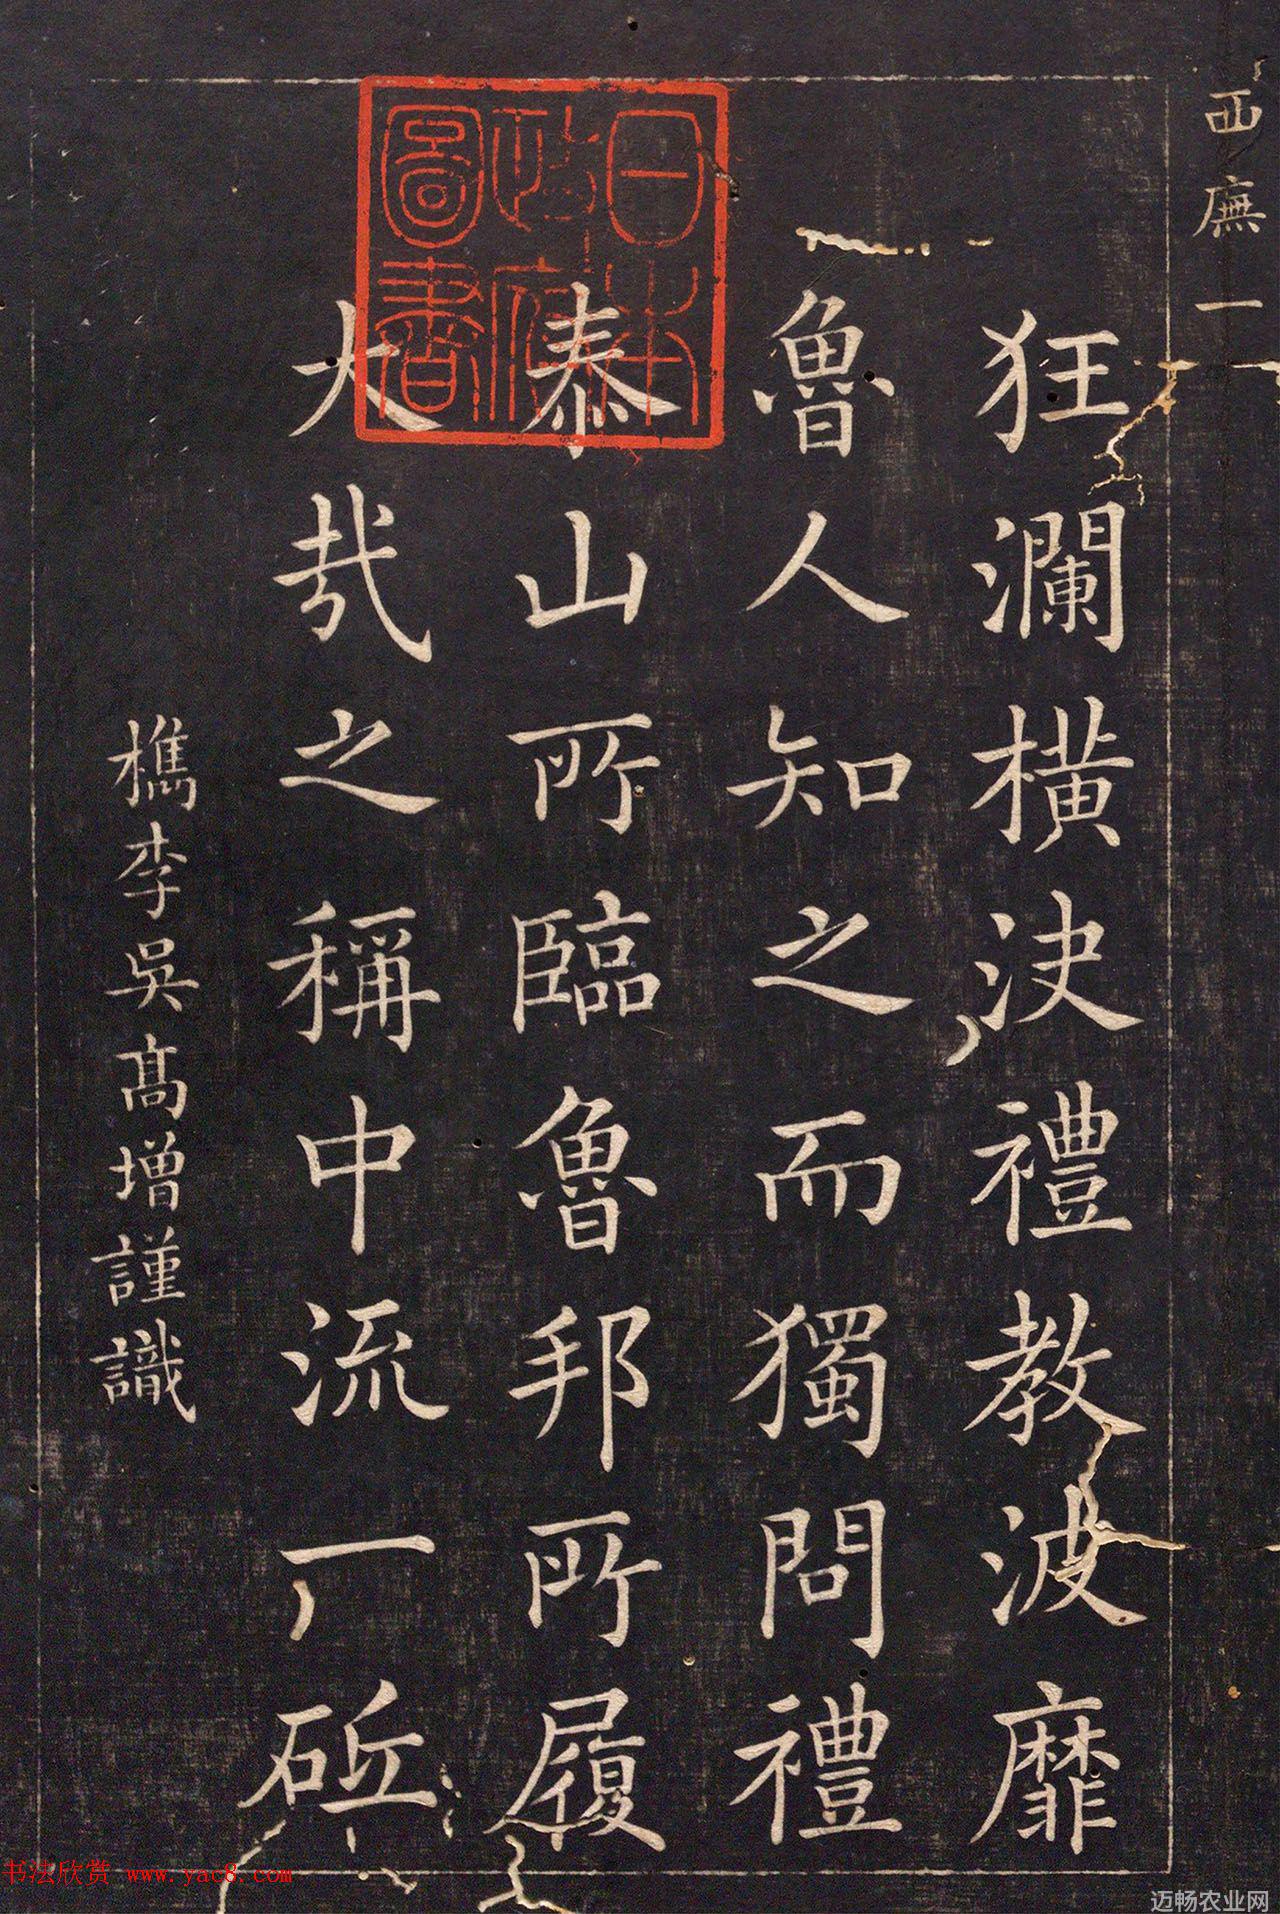 西廡一
狂瀾橫決禮教波靡
魯人知之而獨問禮
泰山所臨魯邦所履
大哉之稱中流一砥
檇李吳高增謹識
日本
政府
圖書
书法欣赏 www.yac8.com
迈畅农业网